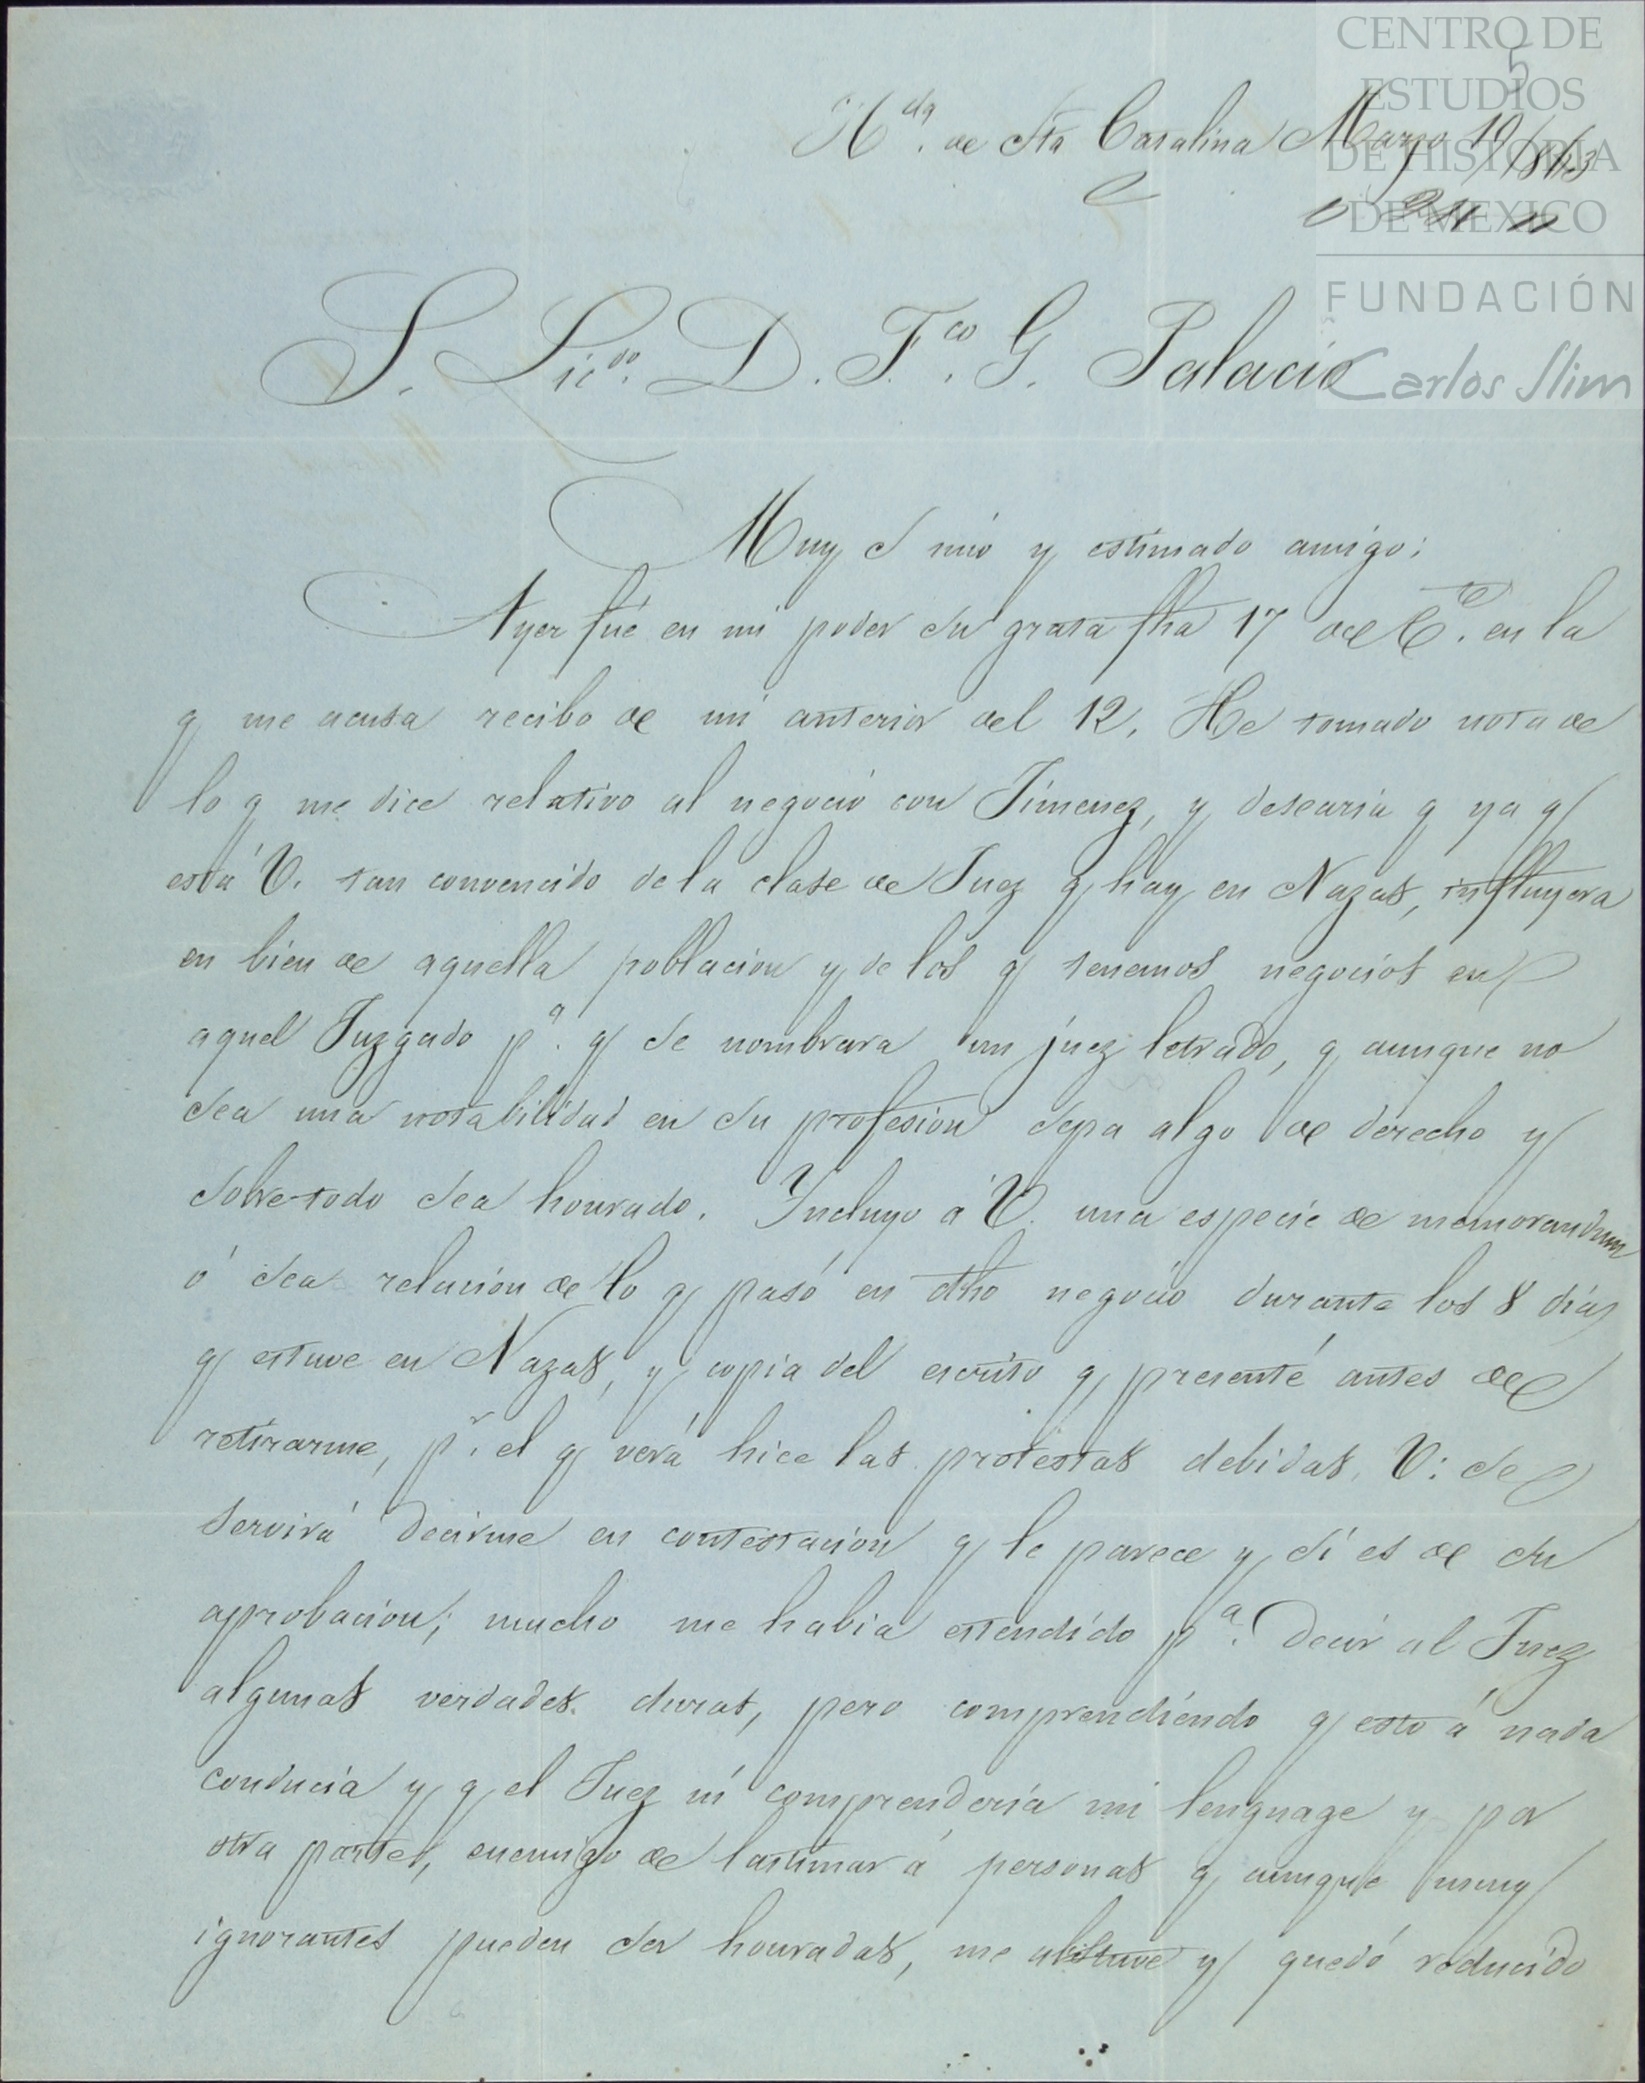 CENTRO DE
ESTUDIOS
DE HISTORIA
DE MEXICO
FUNDACIÓN
Carlos Slim
5
Hda. de Sta Catalina Marzo
S. Licdo. D. Fco. G. Palacio
Muy S mio y estimado amigo:
Ayer fué en mi poder su grata fha 17 del Cte. en la
q me acusa recibo de mi anterior del 12. He tomado nota de
lo q me dice relativo al negocio con Jimenez, y desearia q ya q
está V. tan convencido de la clase de Juez q hay en Nazas, influyera
en bien de aquella poblacion y de los q tenemos negocios en
aquel Juzgado pa. q se nombrara un juez letrado, q aunque no
sea una notabilidad en su profesion sepa algo de derecho y
sobre todo sea honrado. Incluyo á V. una especie de memorandum
ó sea relacion de lo q pasó en dho negocio durante los 8 dias
q estuve en Nazas, y copia del escrito q presenté antes de
retirarme, pr. el q verá hice las protestas debidas. V. se
servirá decirme en contestacion q le parece y si es de su
aprobacion; mucho me habia estendido pa. decir al Juez
algunas verdades duras, pero comprendiendo q esto á nada
conducia y q el Juez ni comprenderia mi lenguage y por
otra parte, enemigo de lastimar á personas q aunque muy
ignorantes pueden ser honradas, me abstuve y quedó reducido